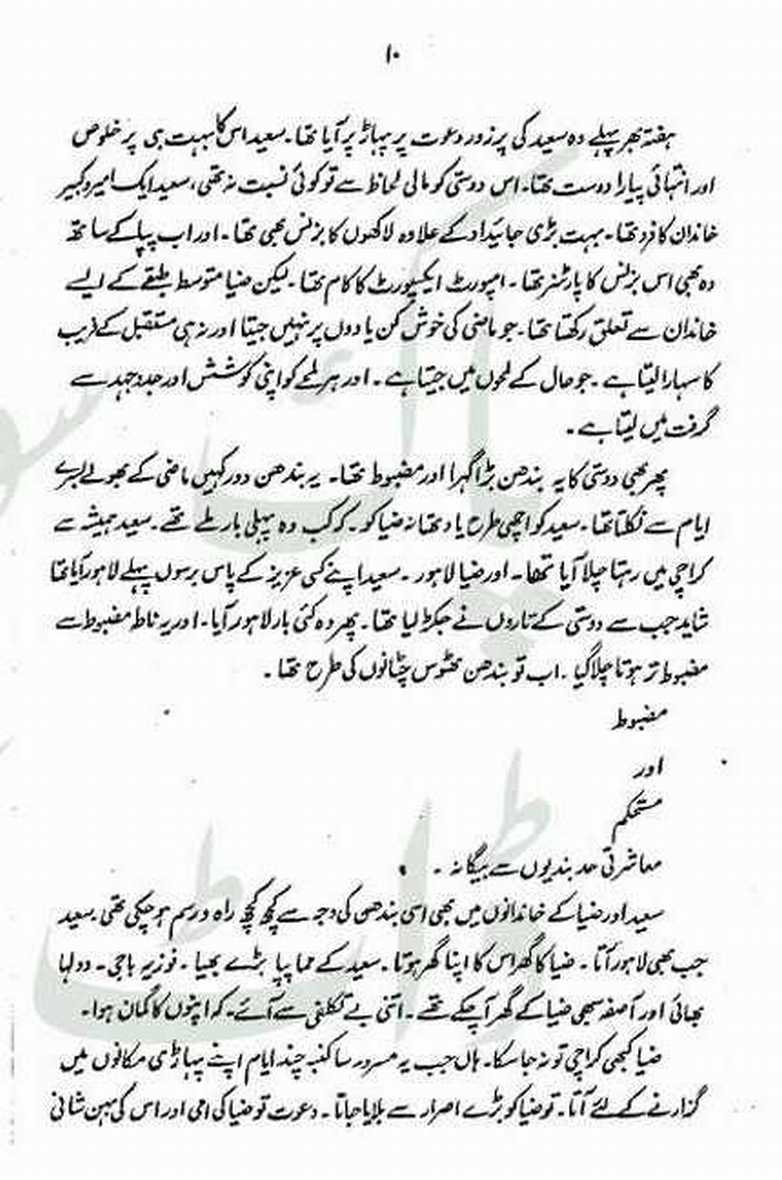 ۱۰
ہفتہ بھر پہلے وہ سعید کی پرزور دعوت پر پہاڑ پر آیا تھا۔ سعید اس کا بہت ہی پرخلوص
اور انتہائی پیارا دوست تھا۔ اس دوستی کو مالی لحاظ سے تو کوئی نسبت نہ تھی، سعید ایک امیر وکبیر
خاندان کا فرد تھا۔ بہت بڑی جائیداد کے علاوہ لاکھوں کا بزنس بھی تھا۔ اور اب پپا کے ساتھ
وہ بھی اس بزنس کا پارٹنر تھا۔ امپورٹ ایکسپورٹ کا کام تھا۔ لیکن ضیا متوسط طبقے کے ایسے
خاندان سے تعلق رکھتا تھا۔ جو ماضی کی خوش کن یادوں پر نہیں جیتا اور نہ ہی مستقبل کے فریب
کا سہارا لیتا ہے۔ جو حال کے لمحوں میں جیتا ہے۔ اور ہر لمحے کو اپنی کوشش اور جدوجہد سے
گرفت میں لیتا ہے۔
پھر بھی دوستی کا یہ بندھن بڑا گہرا اور مضبوط تھا۔ یہ بندھن دور کہیں ماضی کے بھولے بسرے
ایام سے نکلتا تھا۔ سعید کو اچھی طرح یاد تھا نہ ضیا کو۔ کہ کب وہ پہلی بار ملے تھے۔ سعید ہمیشہ سے
کراچی میں رہتا چلا آیا تھا۔ اور ضیا لاہور۔ سعید اپنے کسی عزیز کے پاس برسوں پہلے لاہور آیا تھا
شاید جب سے دوستی کے تاروں نے جکڑ لیا تھا۔ پھر وہ کئی بار لاہور آیا۔ اور یہ ناطہ مضبوط سے
مضبوط تر ہوتا چلا گیا۔ اب تو بندھن ٹھوس چٹانوں کی طرح تھا۔
مضبوط
اور
مستحکم
معاشرتی حد بندیوں سے بیگانہ۔
سعید اور ضیا کے خاندانوں میں بھی اسی بندھن کی وجہ سے کچھ کچھ راہ و رسم ہو چکی تھی۔ سعید
جب بھی لاہور آتا۔ ضیا کا گھر اس کا اپنا گھر ہوتا۔ سعید کے مما پپا بڑے بھیا۔ فوزیہ باجی۔ دولہا
بھائی اور آصفہ سبھی ضیا کے گھر آ چکے تھے۔ اتنی بے تکلفی سے آئے۔ کہ اپنوں کا گمان ہوا۔
ضیا کبھی کراچی تو نہ جا سکا۔ ہاں جب یہ مسرور سا کنبہ چند ایام اپنے پہاڑی مکانوں میں
گزارنے کے لئے آتا۔ تو ضیا کو بڑے اصرار سے بلایا جاتا۔ دعوت تو ضیا کی امی اور اس کی بہن شانی
پاک سو
ڈاٹ